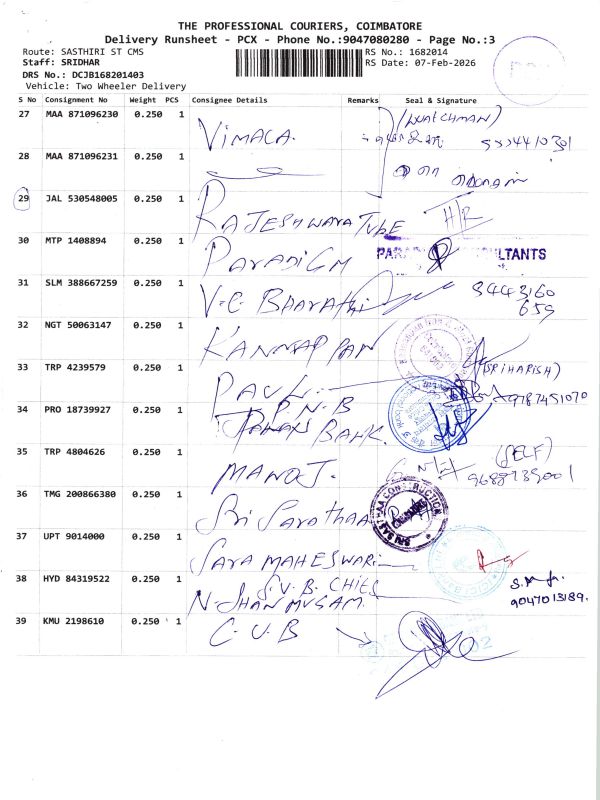 THE PROFESSIONAL COURIERS, COIMBATORE
Delivery Runsheet - PCX - Phone No.:9047080280 - Page No.:3
Route: SASTHIRI ST CMS RS No.: 1682014
Staff: SRIDHAR RS Date: 07-Feb-2026
DRS No.: DCJB168201403
Vehicle: Two Wheeler Delivery
S No Consignment No Weight PCS Consignee Details Remarks Seal & Signature
27 MAA 871096230 0.250 1 VIMALA. (WATCHMAN)
28 MAA 871096231 0.250 1
29 JAL 530548005 0.250 1 RAJESHWARA TUBE H/R
30 MTP 1408894 0.250 1 PARADIGM
31 SLM 388667259 0.250 1 V.C BHARATHI 3443160
659
32 NGT 50063147 0.250 1 KANNAPPAN
33 TRP 4239579 0.250 1 PAUL (SRIHARISH)
9787451070
34 PRO 18739927 0.250 1 P.N.B
BANK
35 TRP 4804626 0.250 1 MANOJ. (SELF)
36 TMG 200866380 0.250 1 SRI SASTHAA
SRI SASTHAA CONSTRUCTION
37 UPT 9014000 0.250 1 MAHESWARI
38 HYD 84319522 0.250 1 S.V.B. CHITS
N. SHANMUGAM. 9047013189.
39 KMU 2198610 0.250 1 C.U.B